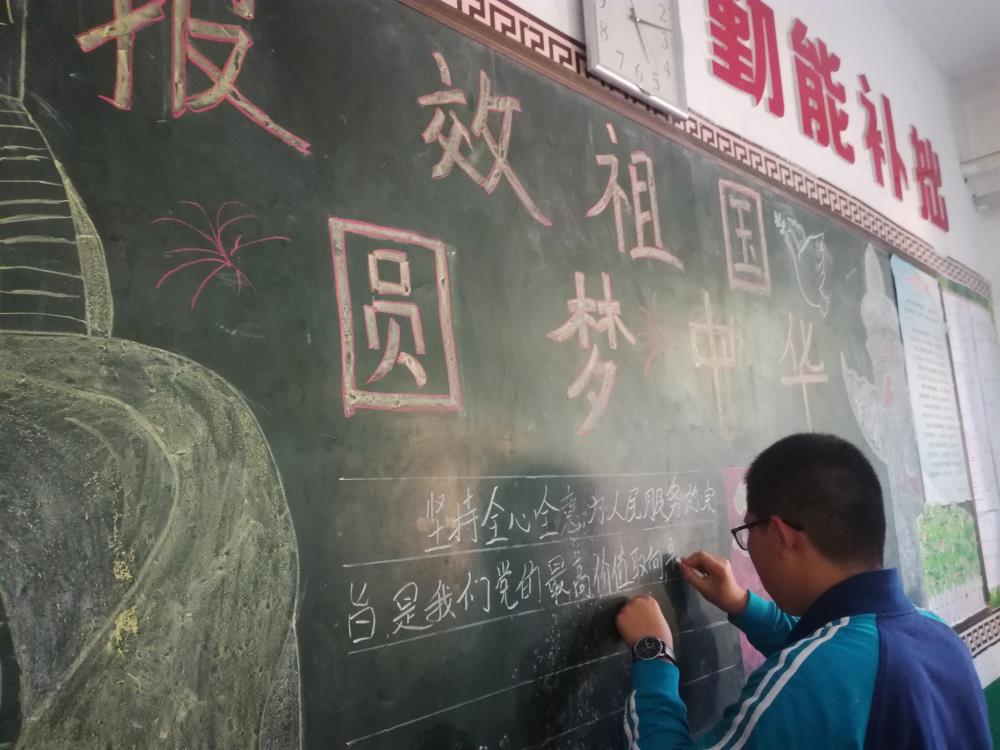 勤能补拙
报效祖国
圆梦中华
坚持全心全意为人民服务的宗
旨是我们党的最高价值取向